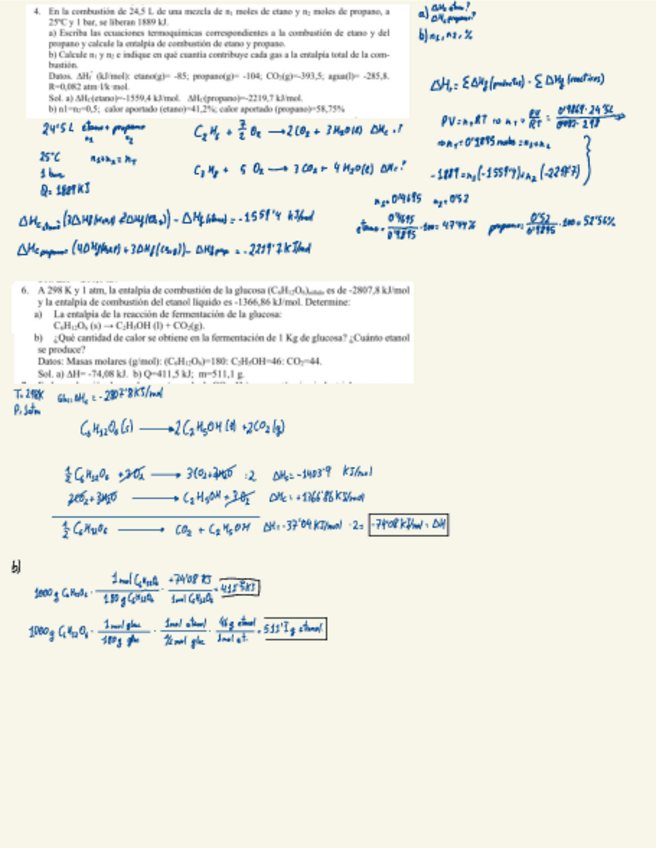 4. En la combustión de 24,5 L de una mezcla de n₁ moles de etano y n₂ moles de propano, a
25ºC y 1 bar, se liberan 1889 kJ.
a) Escriba las ecuaciones termoquímicas correspondientes a la combustión de etano y del
propano y calcule la entalpía de combustión de etano y propano.
b) Calcule n₁ y n₂ e indique en qué cuantía contribuye cada gas a la entalpía total de la com-
bustión.
Datos. ΔHf° (kJ/mol): etano(g)= -85; propano(g)= -104; CO₂(g)=-393,5; agua(l)= -285,8.
R=0,082 atm·l/k·mol.
Sol. a) ΔHc(etano)=-1559,4 kJ/mol. ΔHc(propano)=-2219,7 kJ/mol.
b) n1=n₂=0,5; calor aportado (etano)=41,2%; calor aportado (propano)=58,75%
a) ΔHc etano?
ΔHc propano?
b) n₁, n₂, %
ΔHr = Σ ΔHf (productos) - Σ ΔHf (reactivos)
24'5 L etano + propano
n₁ n₂
25ºC n₁+n₂ = nT
1 bar
Q = 1889 KJ
C₂H₆ + 7/2 O₂ → 2CO₂ + 3H₂O(l) ΔHc?
C₃H₈ + 5 O₂ → 3CO₂ + 4H₂O(l) ΔHc?
PV = nT RT ⇒ nT = PV/RT = 0'9869·24'5L/0'082·298
⇒ nT = 0'9895 moles = n₁+n₂
-1889 = n₁(-1559'4)+n₂(-2219'7)
n₁ = 0'4695 n₂ = 0'52
etano = 0'4695/0'9895·100 = 47'44% propano = 0'52/0'9895·100 = 52'56%
ΔHc etano (3ΔHf(H₂O)+2ΔHf(CO₂)) - ΔHf(etano) = -1559'4 kJ/mol
ΔHc propano (4ΔHf(H₂O)+3ΔHf(CO₂)) - ΔHf prop = -2219'7 kJ/mol
6. A 298 K y 1 atm, la entalpía de combustión de la glucosa (C₆H₁₂O₆)sólido es de -2807,8 kJ/mol
y la entalpía de combustión del etanol líquido es -1366,86 kJ/mol. Determine:
a) La entalpía de la reacción de fermentación de la glucosa:
C₆H₁₂O₆ (s) → C₂H₅OH (l) + CO₂(g).
b) ¿Qué cantidad de calor se obtiene en la fermentación de 1 Kg de glucosa? ¿Cuánto etanol
se produce?
Datos: Masas molares (g/mol): (C₆H₁₂O₆)=180; C₂H₅OH=46; CO₂=44.
Sol. a) ΔH= -74,08 kJ. b) Q=411,5 kJ; m=511,1 g.
T = 298K Glu: ΔHc = -2807'8 KJ/mol
P = 1atm
C₆H₁₂O₆(s) → 2C₂H₅OH (l) + 2CO₂(g)
1/2 C₆H₁₂O₆ + 3O₂ → 3CO₂+3H₂O :2 ΔHc = -1403'9 KJ/mol
2CO₂+3H₂O → C₂H₅OH + 3O₂ ΔHc = +1366'86 KJ/mol
1/2 C₆H₁₂O₆ → CO₂ + C₂H₅OH ΔH = -37'04 KJ/mol · 2 = -74'08 KJ/mol = ΔH
b)
1000 g C₆H₁₂O₆ · 1 mol C₆H₁₂O₆/180 g C₆H₁₂O₆ · +74'08 KJ/1mol C₆H₁₂O₆ = 411'5 KJ
1000 g C₆H₁₂O₆ · 1 mol gluc/180g gluc · 1mol etanol/1/2 mol gluc · 46g etanol/1mol et. = 511'1 g etanol